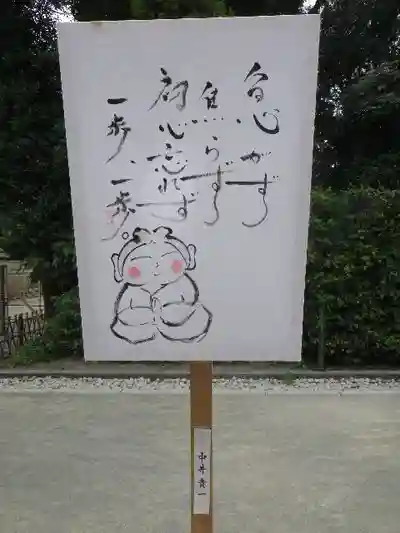 急がず
焦らず
初心忘れず
一歩、一歩。
中井貴一